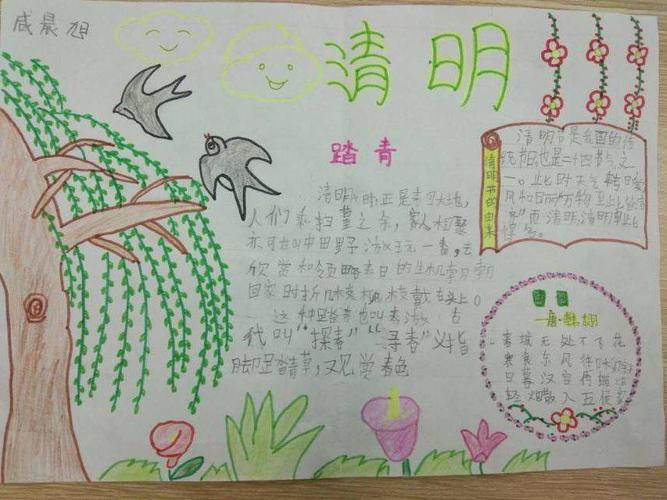 咸晨旭
清明
踏青
清明时正是春回大地,
人们乘扫墓之余,家人相聚
亦可在山中田野游玩一番,去
欣赏和领略春日的生机
回家时折几枝柳枝戴在头上。
这种踏青也叫春游 古
代叫“探春”“寻春”义指
脚踏青草,又见赏春色
清明节的由来
清明节是我国的传
统节日也是二十四节气之
一。此时天气转暖
风和日丽万物至此皆
洁 而清明,清明
寒食
唐·韩翃
春城无处不飞花
寒食东风御柳斜
日暮汉宫传蜡烛
轻烟散入五侯家